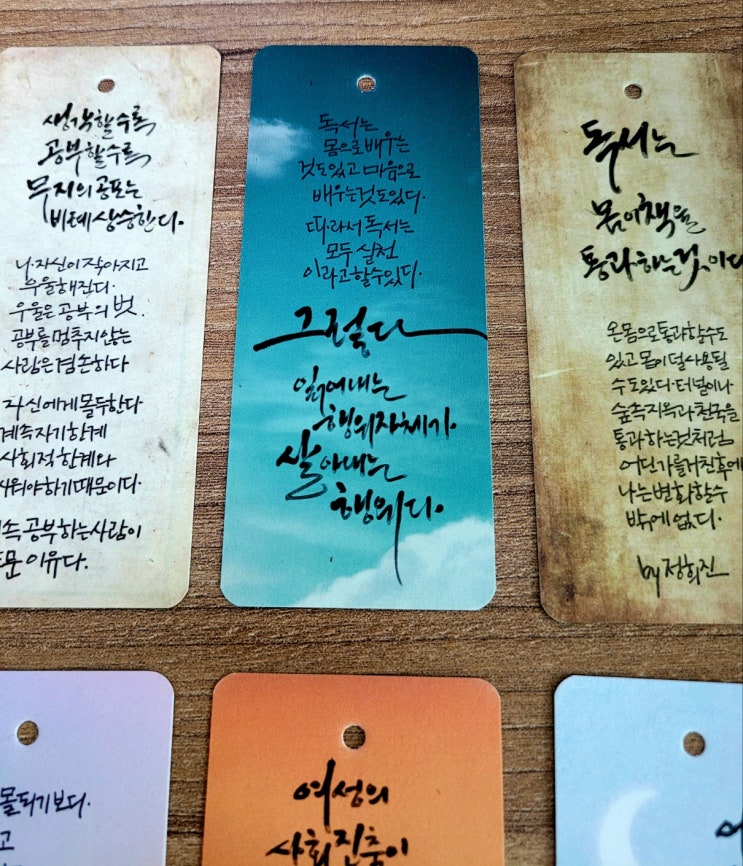 생각할수록
공부할수록
무지의 공포는
비례 상승한다.
나 자신이 작아지고
우울해진다.
우울은 공부의 벗.
공부를 멈추지 않는
사람은 겸손하다
자신에게 몰두한다
계속 자기 한계
사회적 한계와
싸워야 하기 때문이다.
속 공부하는 사람이
문 이유다.
독서는
몸으로 배우는
것도 있고 마음으로
배우는 것도 있다.
따라서 독서는
모두 실천
이라고 할 수 있다.
그렇다
읽어내는
행위 자체가
살아내는
행위다.
독서는
몸이 책을
통과하는 것이다
온몸으로 통과할 수도
있고 몸이 덜 사용될
수도 있다. 터널이나
숲속 지옥과 천국을
통과하는 것처럼
어딘가를 거친 후에
나는 변화할 수
밖에 없다.
by 정희진
몰되기보다.
고
여성의
사회 진출이